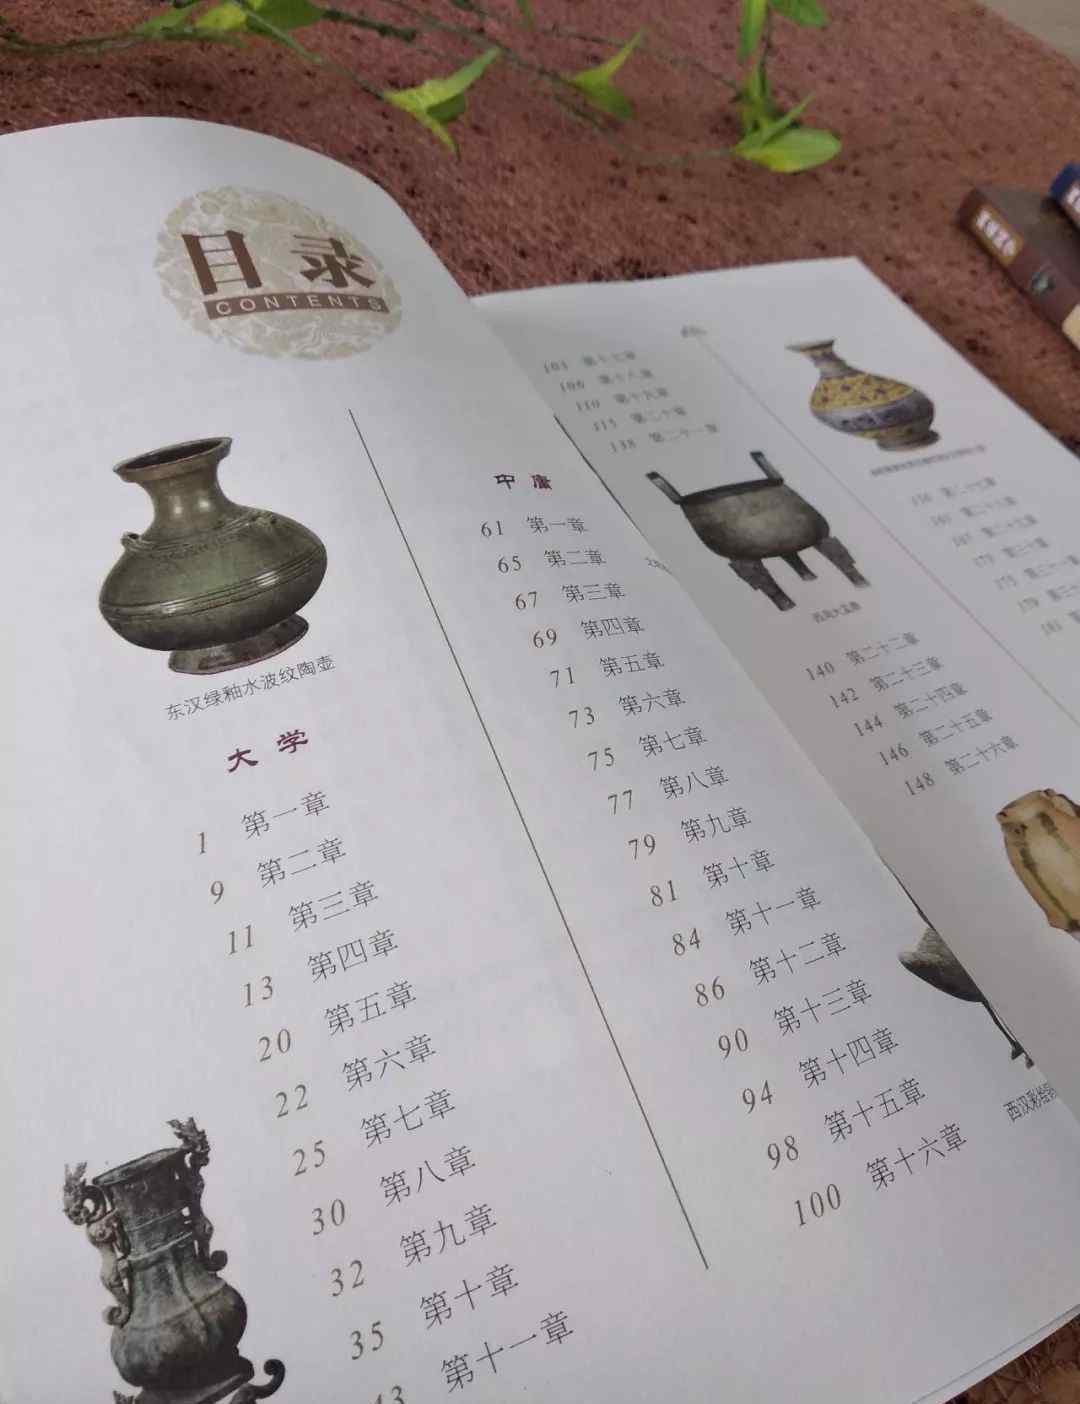 目录
CONTENTS
东汉绿釉水波纹陶壶
大学
1 第一章
9 第二章
11 第三章
13 第四章
20 第五章
22 第六章
25 第七章
30 第八章
32 第九章
35 第十章
43 第十一章
中庸
61 第一章
65 第二章
67 第三章
69 第四章
71 第五章
73 第六章
75 第七章
77 第八章
79 第九章
81 第十章
84 第十一章
86 第十二章
90 第十三章
94 第十四章
98 第十五章
100 第十六章
103 第十七章
106 第十八章
110 第十九章
115 第二十章
138 第二十一章
140 第二十二章
142 第二十三章
144 第二十四章
146 第二十五章
148 第二十六章
西汉彩绘